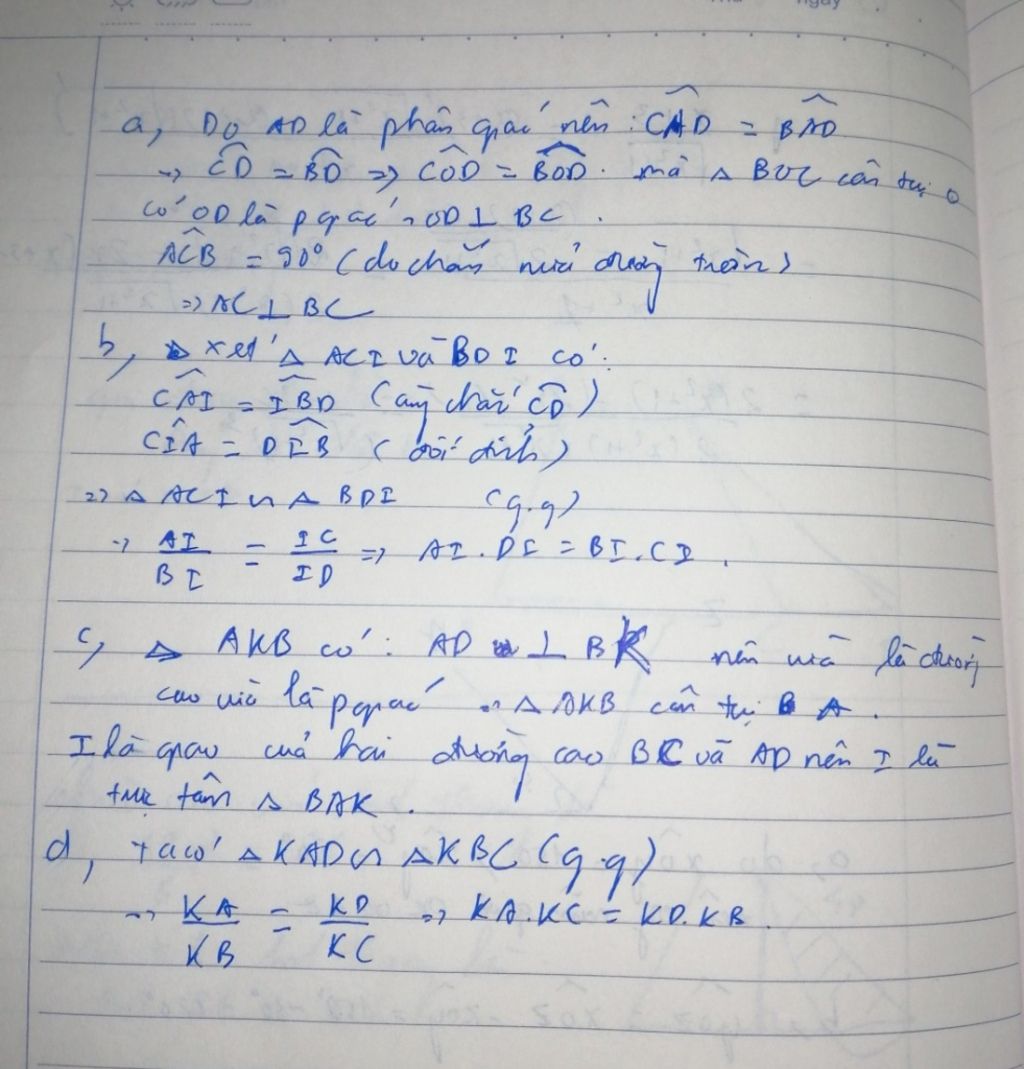 a, Do AD là phân giác nên: \widehat{CAD} = \widehat{BAD}
=> \overset{\frown}{CD} = \overset{\frown}{BD} => \widehat{COD} = \widehat{BOD}. mà Δ BOC cân tại O
có OD là p giác => OD ⊥ BC.
\widehat{ACB} = 90° (do chắn nửa đường tròn)
=> AC ⊥ BC
b, xét Δ ACI và BDI có:
\widehat{CAI} = \widehat{IBD} (cùng chắn \overset{\frown}{CD})
\widehat{CIA} = \widehat{DIB} (đối đỉnh)
=> Δ ACI ∽ Δ BDI (g.g)
=> \frac{AI}{BI} = \frac{IC}{ID} => AI.DI = BI.CI.
c, Δ AKB có: AD ⊥ BK nên vừa là đường
cao vừa là p giác => Δ AKB cân tại A.
I là giao của hai đường cao BC và AD nên I là
trực tâm Δ BAK.
d, ta có Δ KAD ∽ Δ KBC (g.g)
=> \frac{KA}{KB} = \frac{KD}{KC} => KA.KC = KD.KB.